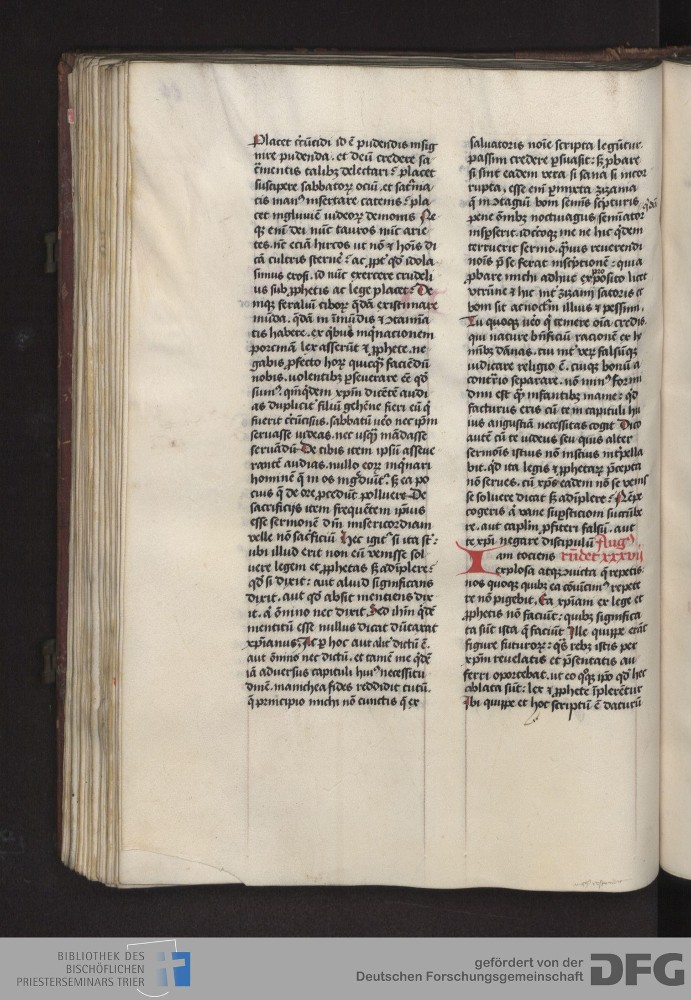 Placet cr̄cūcidi id ē pudendis insig
nire pudenda . et deū credere sa
cͣmentis talibꝫ delectari ? placet
suscipere sabbatoꝝ ociū . et satͥnia
cis manꝰ insertare catenis ? pla
cet ingluuiē iudeoꝝ demonis Ne
qꝫ eni dei nūc tauros nūc arie
tes . nūc eciā hircos ut nō ⁊ hoīes di
cā cultris sternē ? ac ꝓpt̕ qd̕ idola
simus exosi . id nūc exercere crudeli
us sub ꝓphetis ac lege placet ? De
niqꝫ feraliū ciboꝝ qd̕ā existimare
mūda . qd̕ā in īmūdis ⁊ ꝯtamīa
tis habere . ex qͥbus inqͥnacionem
porcinā lex asserūt ⁊ ꝓphete . ne
gabis ꝓfecto hoꝝ quicqͣꝫ faciēdū
nobis . uolentibꝫ ꝑseuerare eē qd̕
sumꝰ . qn̄qd̕em xp̄m dicētē audi
as duplicit̕ filiū gehēne fieri eū q̄
fuerit cr̄cūcisus . sabbatū u̕o nec ip̄m
seruasse uideas . nec usqͣꝫ mādasse
seruādū De cibis item ipsū asseue
rantē audias . nullo eoꝝ inqͥnari
hominē q̄ in os ingͣdiunt̕ . sꝫ ea po
cius q̄ de ore ꝓcedūt polluere De
sacrificijs item frequētem ipsius
esse sermonē dm̄ misericordiam
velle nō sacͥficiū Hec igit̕ si ita st̄ :
ubi illud erit non eū venisse sol
uere legem et ꝓphetas sꝫ adīplere :
qd̕ si dixit : aut aliud significans
dixit . aut qd̕ absit mentiens dix
it . a̕ ōmino nec dixit . Sed ihm̄ qͥdē
mentitū esse nullus dicat dūtaxat
xp̄ianus . Ac ꝑ hoc aut alit̕ dictū ē .
aut ōmino nec dictū . et tamē me qͥdē
iā aduersus capituli huiꝰ necessitu
dinē . manichea fides reddidit tutū .
q̄ principio michi nō cunctis q̄ ex
saluatoris noīe scripta legūtur
passim credere ꝑsuasit : sꝫ ꝓbare
si sint eadem vera si sana si incor
rupta . esse eni ꝑmixta zizania
q̄ in ꝯtagiū boni seminis sc̕pturis qͥdā
pene ōmibꝫ noctiuagus seminator
insꝑserit . idcircoqꝫ me ne hic qͥdem
terruerit sermo . qͣmuis reuerendi
nois p̄ se ferat inscͥpcionē : quia
ꝓbare michi adhuc ex ꝓposito licet
utrūne ⁊ hic int̕ zizanij satoris et
boni sit a noctīm illius ⁊ pessimi .
Tu quoqꝫ u̕o q̄ temere oīa credis .
qui nature bn̄ficiū racionē ex ho
mībꝫ dānas . cui int̕ veꝝ falsūqꝫ
iudicare religio ē . cuiqꝫ bonū a
contͣrio separare . nō minꝰ formi
dini est qͣꝫ infantibꝫ inanie : qd̕
facturus eris cū te in capituli hu
ius angustiā necessitas cogit Dico
autē cū te iudeus seu quis alter
sermōis istius nō inscius int̕pella
bit . qd̕ ita legis ⁊ ꝓphetaꝝ p̄cepta
nō serues . cū xp̄s eadem nō se venis
se soluere dicat sꝫ adīplere : Nēpe
cogeris a̕ vane supsticioni sucūbe
re . aut caplīm ꝓfiteri falsū . aut
te xp̄i negare discipulū Augꝰ
Iam tociens rn̄det xxxvij
explosa atqꝫ ꝯuicta q̄ repetis
nos quoqꝫ quibꝫ ea cōuicimꝰ repete
re nō pigebit . Ea xp̄iani ex lege et
ꝓphetis nō faciūt : quibꝫ significa
ta sūt ista q̄ faciūt Ille quippe erāt
figure futuroꝝ : qͣs rebꝫ istis per
xp̄m reuelatis et p̄sentatis au
ferri oportebat . ut eo qͦqꝫ ip̄o qd̕ hec
ablata sūt : lex ⁊ ꝓphete īplerētur
Ibi quippe et hoc scriptū ē daturū
BIBLIOTHEK DES
BISCHÖFLICHEN
PRIESTERSEMINARS TRIER
gefördert von der
Deutschen Forschungsgemeinschaft
DFG